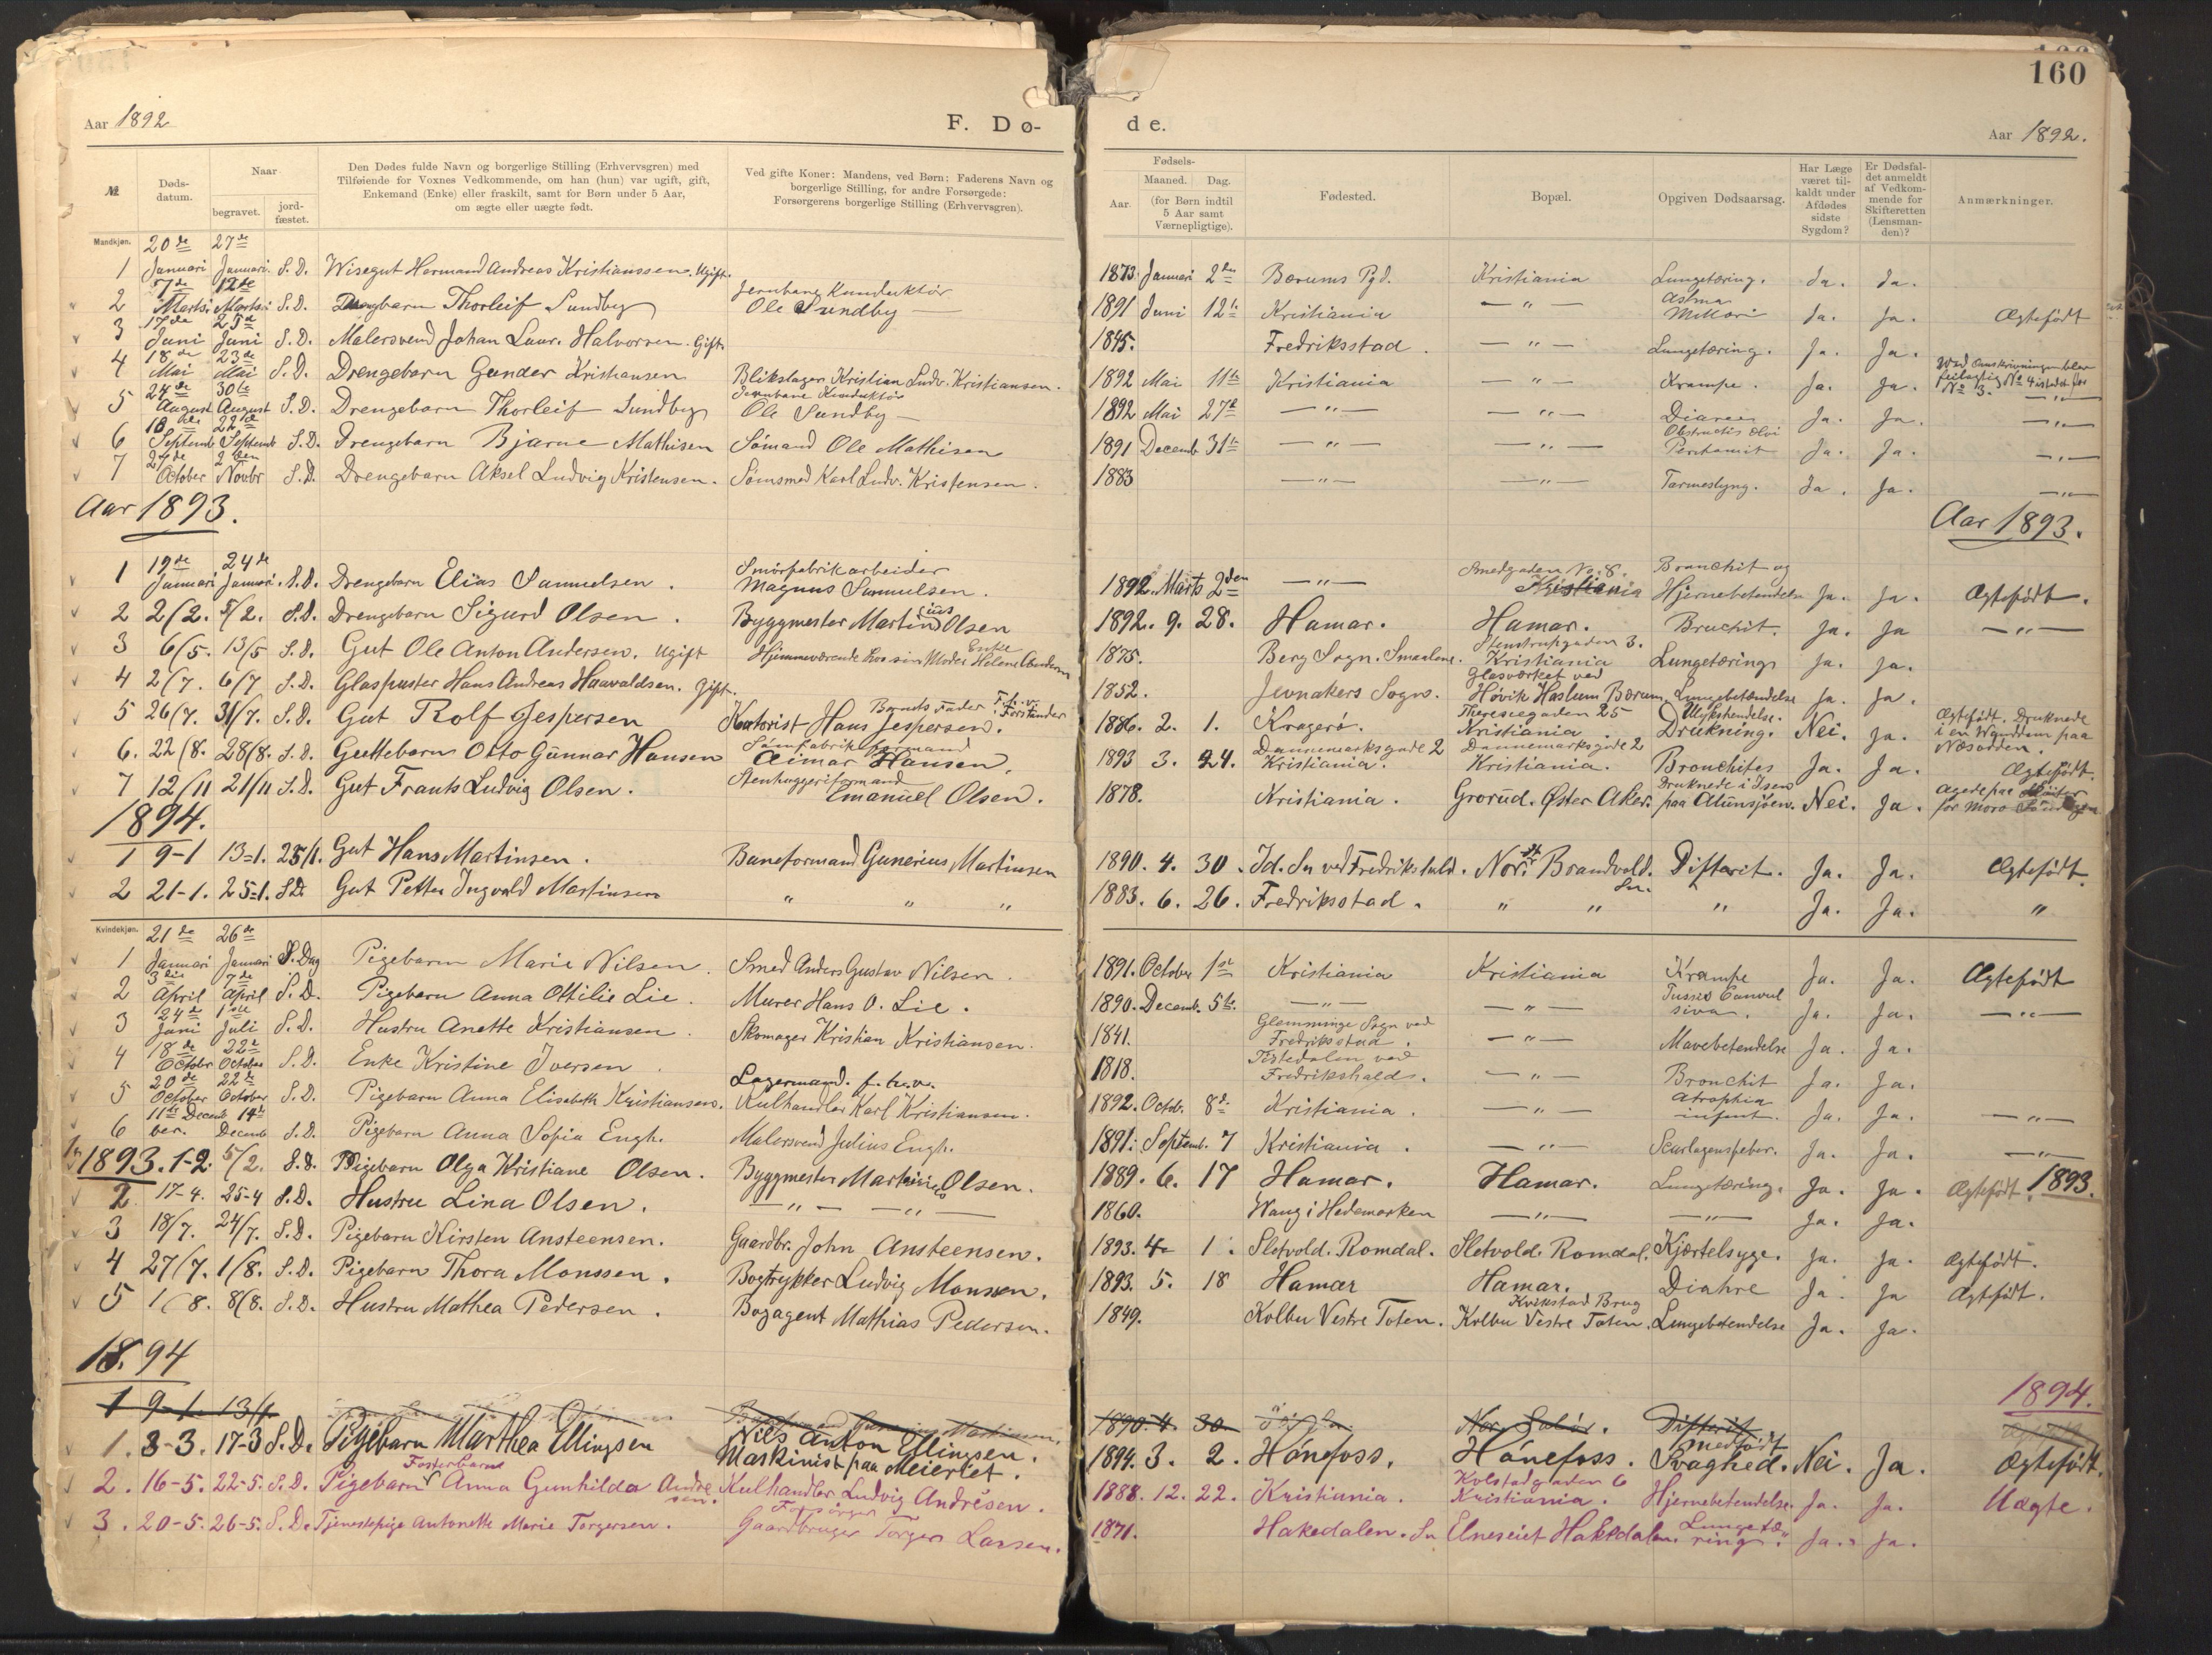 160
Aar 1892. F. Dø- de. Aar 1892.
№ Døds-datum. Naar begravet. jord-fæstet. Den Dødes fulde Navn og borgerlige Stilling (Erhvervsgren) med Tilføiende for Voxnes Vedkommende, om han (hun) var ugift, gift, Enkemand (Enke) eller fraskilt, samt for Børn under 5 Aar, om ægte eller uægte født. Ved gifte Koner: Mandens, ved Børn: Faderens Navn og borgerlige Stilling, for andre Forsørgede: Forsørgerens borgerlige Stilling (Erhvervsgren). Fødsels- Aar. Maaned. Dag. (for Børn indtil 5 Aar samt Værnepligtige). Fødested. Bopæl. Opgiven Dødsaarsag. Har Læge været til-kaldt under Afdødes sidste Sygdom? Er Dødsfal-det anmeldt af Vedkom-mende for Skifteretten (Lensman-den)? Anmærkninger.
Mandkjøn.
1 20de Januari 27de Januari. S.D. Wisegut Hermand Andreas Kristianssen. Ugift. 1873 Januari 2den Bærums Pgd. Kristiania Lungetæring. Ja. Ja.
2 7de Marts 12te Marts S.D. Drengebarn Thorleif Sundby Jernbane Kunduktør Ole Sundby 1891 Juni 12te Kristiania —"— Astma Ja. Ja. Ægtefødt
3 17de Juni 25de Juni S.D. Malersvend Johan Laur. Halvorsen. Gift. 1845. Fredriksstad. —"— Lungetæring. Ja. Ja.
4 18de Mai 23de Mai S.D. Drengebarn Gunder Kristiansen Blikslager Kristian Ludv. Kristiansen. 1892 Mai 11te Kristiania —"— Krampe. Ja. Ja. Ved Omskrivningen blev feilagtig No 4 istedet for No 3. —"—
5 24de August 30te August S.D. Drengebarn Thorleif Sundby Jernbane Kunduktør Ole Sundby 1892 Mai 27de —"— —"— Diareer Ja. Ja. —"—
6 18de Septemb 22de Septemb S.D. Drengebarn Bjarne Mathisen Sømand Ole Mathisen 1891 Decemb 31te —"— —"— Ja. Ja. —"—
7 27de October 2den Novbr S.D. Drengebarn Aksel Ludvig Kristensen. Sømsmed Karl Ludv. Kristensen. 1883 —"— —"— Tarmeslyng. Ja. Ja. —"—
Aar 1893. Aar 1893.
1 19de Januari 24de Januari. S.D. Drengebarn Elias Samuelsen. Smørfabrikarbeider Magnus Samuelsen. 1892. Marts 2den —"— Smedgaden No. 8. Kristiania Bronchit og Hjernebetendelse Ja. Ja. Ægtefødt.
2 2/2. 5/2. S.D. Drengebarn Sigurd Olsen. Byggmester Martinius Olsen 1892. 9. 28. Hamar. Hamar. Bruchit. Ja. Ja —"—
3 6/5. 13/5 S.D. Gut Ole Anton Andersen. Ugift Hjemmeværende hos sin Moder Enke Helene Andersen 1875. Berg Sogn. Smaalene. Stenstrupgaden 3. Kristiania Lungetæring Ja. Ja.
4 2/7. 6/7 S.D. Glaspuster Hans Andreas Haavaldsen. Gift. 1852. Jevnakers Sogn. Glasværket ved Høvik Haslum Bærum. Lungebetændelse Ja. Ja.
5 26/7. 31/7. S.D. Gut Rolf Jespersen Barnets Fader Kontorist Hans Jespersen. Forstander 1886. 2. 1. Kragerø. Theresegaden 25 Kristiania. Ulykshendelse. Drukning. Nei. Ja. Ægtefødt. Druknede i en Wanddam paa Næsodden.
6. 22/8. 28/8. S.D. Guttebarn Otto Gunnar Hansen Sømfabrikformand Aimar Hansen. 1893 3. 24. Dannemarksgade 2 Kristiania. Dannemarksgade 2 Kristiania. Bronchites Ja. Ja. Ægtefødt.
7 12/11 21/11 S.D. Gut Frants Ludvig Olsen. Stenhuggeriformand Emanuel Olsen. 1878. Kristiania. Grorud. Øster Aker. Druknede i Isen paa Alunsjøen. Nei. Ja. Agede paa for moro
1894.
1 9-1 13-1. 25/1. Gut Hans Martinsen. Baneformand Gunerius Martinsen 1890. 4. 30. Id. Sn ved Fredrikshald. Nor. Brandvold. Sn. Difterit. Ja. Ja. Ægtefødt.
2 21-1. 25-1. S.D. Gut Petter Ingvald Martinsen " " " 1883. 6. 26. Fredriksstad. " " " Ja. Ja. "
Kvindekjøn.
1 21de Januari 26de Januari S.Dag Pigebarn Marie Nilsen. Smed Anders Gustav Nilsen. 1891. October 1ste Kristiania Kristiania Krampe Ja. Ja. Ægtefødt
2 3die April 7de April S.D. Pigebarn Anna Ottilie Lie. Murer Hans O. Lie. 1890. Decemb. 5te. —"— —"— Tussis Convulsiva. Ja. Ja. —"—
3 24de Juni 1ste Juli S.D. Hustru Anette Kristiansen. Skomager Kristian Kristiansen. 1841. Glemminge Sogn ved Fredriksstad. —"— Mavebetendelse Ja. Ja.
4 18de Octobr 22de October S.D. Enke Kristine Iversen. 1818. Tistedalen ved Fredrikshald. —"— Bronchit Ja. Ja.
5 20de October 22de October S.D. Pigebarn Anna Elisebeth Kristiansen. Lagermand. f. h.v. Kulhandler Karl Kristiansen. 1892. Octob. 8de Kristiania. —"— Atrophia infant. Ja. Ja. —"—
6 11te December. 14de Decemb S.D. Pigebarn Anna Sofia Engh. Malersvend Julius Engh. 1891. Septemb. 7 Kristiania. —"— Scarlagensfeber. Ja. Ja. —"—
1893. 1-2. 5/2. S.D. Pigebarn Olga Kristiane Olsen. Byggmester Martinius Olsen. 1889. 6. 17 Hamar. Hamar. Lungetæring. Ja. Ja. Ægtefødt. 1893.
2 17-4. 25-4 S.D. Hustru Lina Olsen. —"— —"— 1860. Vang i Hedemarken —"— —"— Ja. Ja.
3 18/7. 24/7. S.D. Pigebarn Kirsten Ansteensen. Gaardbr. John Ansteensen. 1893. 4 1. Sletvold. Romdal. Sletvold. Romdal. Kjertelsyge. Ja. Ja. Ægtefødt.
4 27/7. 1/8. S.D. Pigebarn Thora Monssen. Bogtrykker Ludvig Monssen. 1893. 5. 18 Hamar Hamar. Diahre Ja. Ja Ægtfødt.
5 1/8. 8/8. S.D. Hustru Mathea Pedersen. Bogagent Mathias Pedersen. 1849. Kolbu Vestre Toten. Kvikstad Brug Kolbu Vestre Toten. Lungebetendelse Ja. Ja.
1894 1894.
1 9-1. 13/1 1890. 4. 30 Nor. Solør. Difterit
1. 8-3. 17-3 S.D. Pigebarn Marthea Ellingsen Nils Anton Ellingsen. Maskinist paa Meieriet. 1894. 3. 2. Hønefoss. Hønefoss. medfødt Svaghed. Nei. Ja. Ægtefødt.
2. 16-5. 22-5. S.D. Pigebarn Fosterbarn Anna Gunhilda Andresen. Kulhandler Ludvig Andrésen. 1888. 12. 22. Kristiania. Kolstadgaden 6 Kristiania. Hjernebetendelse. Ja. Ja. Uægte.
3. 20-5. 26-5. S.D. Tjenestepige Antonette Marie Torgersen. Forsørger Gaardbruger Torger Larsen. 1871. Hakedalen. Sn Elneseiet Hakedalen. Lungetæring. Ja. Ja.